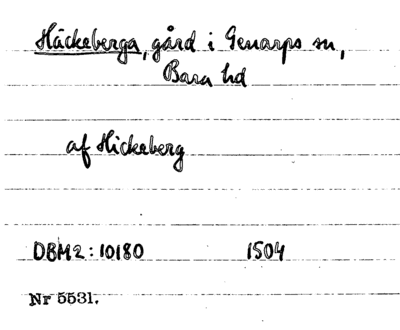 Häckeberga, gård i Genarps sn,
Bara hd
af Hickeberg
DBM2:10180 1504
Nr 5531.